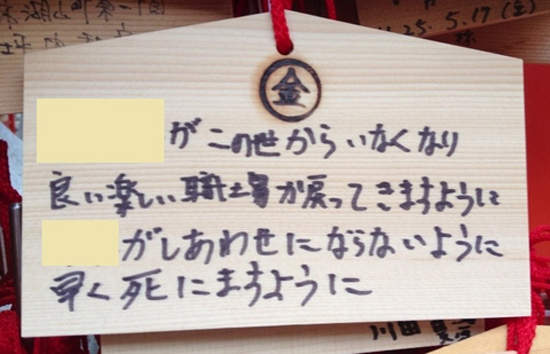 金
がこの世からいなくなり
良い楽しい職場が戻ってきますように
がしあわせにならないように
早く死にますように
25.5.17(金)